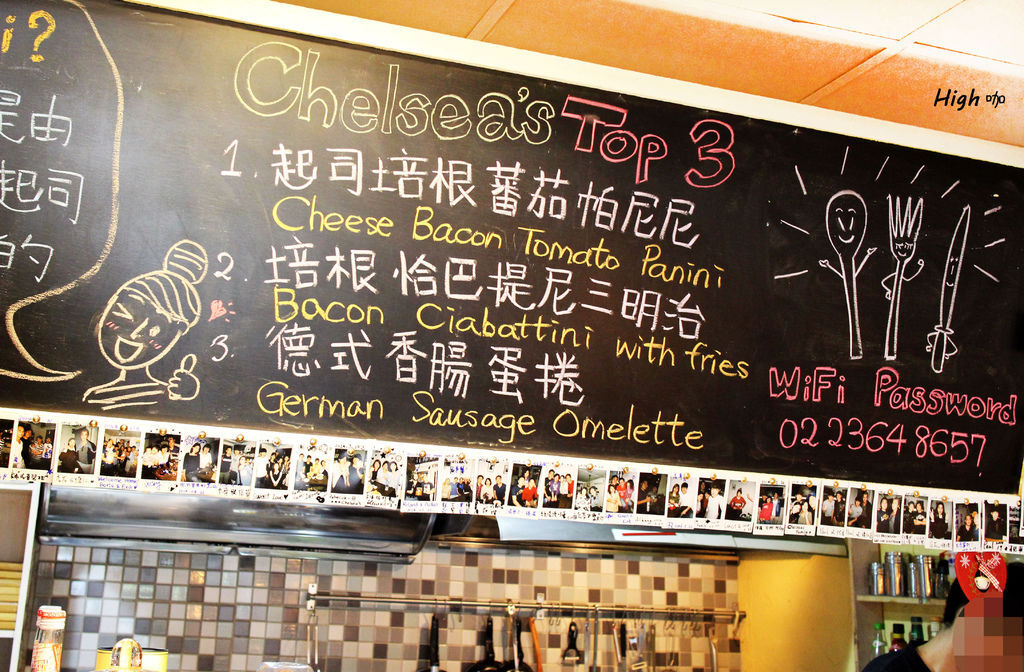 i?
是由
起司
的
Chelsea's Top 3
1. 起司培根蕃茄帕尼尼
Cheese Bacon Tomato Panini
2. 培根 恰巴提尼三明治
Bacon Ciabattini with fries
3. 德式 香腸 蛋捲
German Sausage Omelette
WiFi Password
02 2364 8657
High 咖